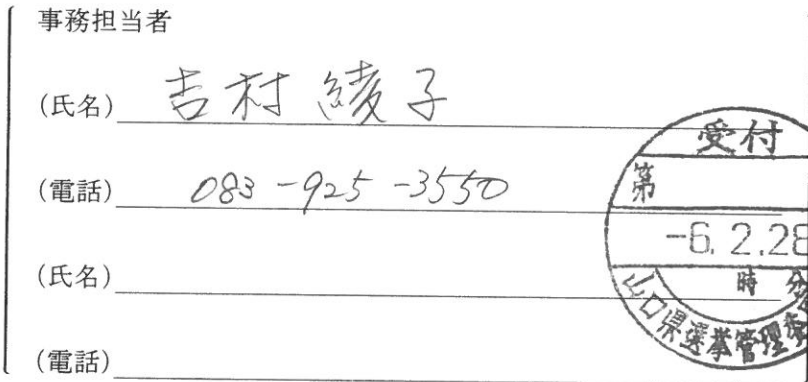 事務担当者
(氏名) 吉村 綾子
(電話) 083-925-3550
(氏名)
(電話)
受付
第
-6.2.28
時 分
山口県選挙管理委